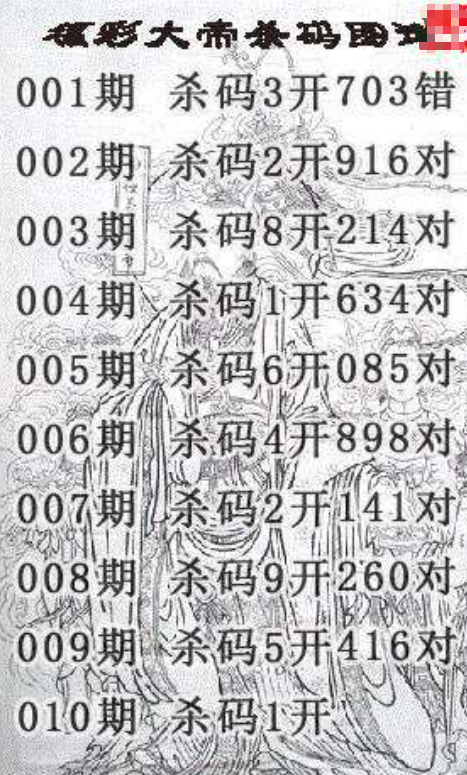 福彩大帝杀码图
001期 杀码3开703错
002期 杀码2开916对
003期 杀码8开214对
004期 杀码1开634对
005期 杀码6开085对
006期 杀码4开898对
007期 杀码2开141对
008期 杀码9开260对
009期 杀码5开416对
010期 杀码1开